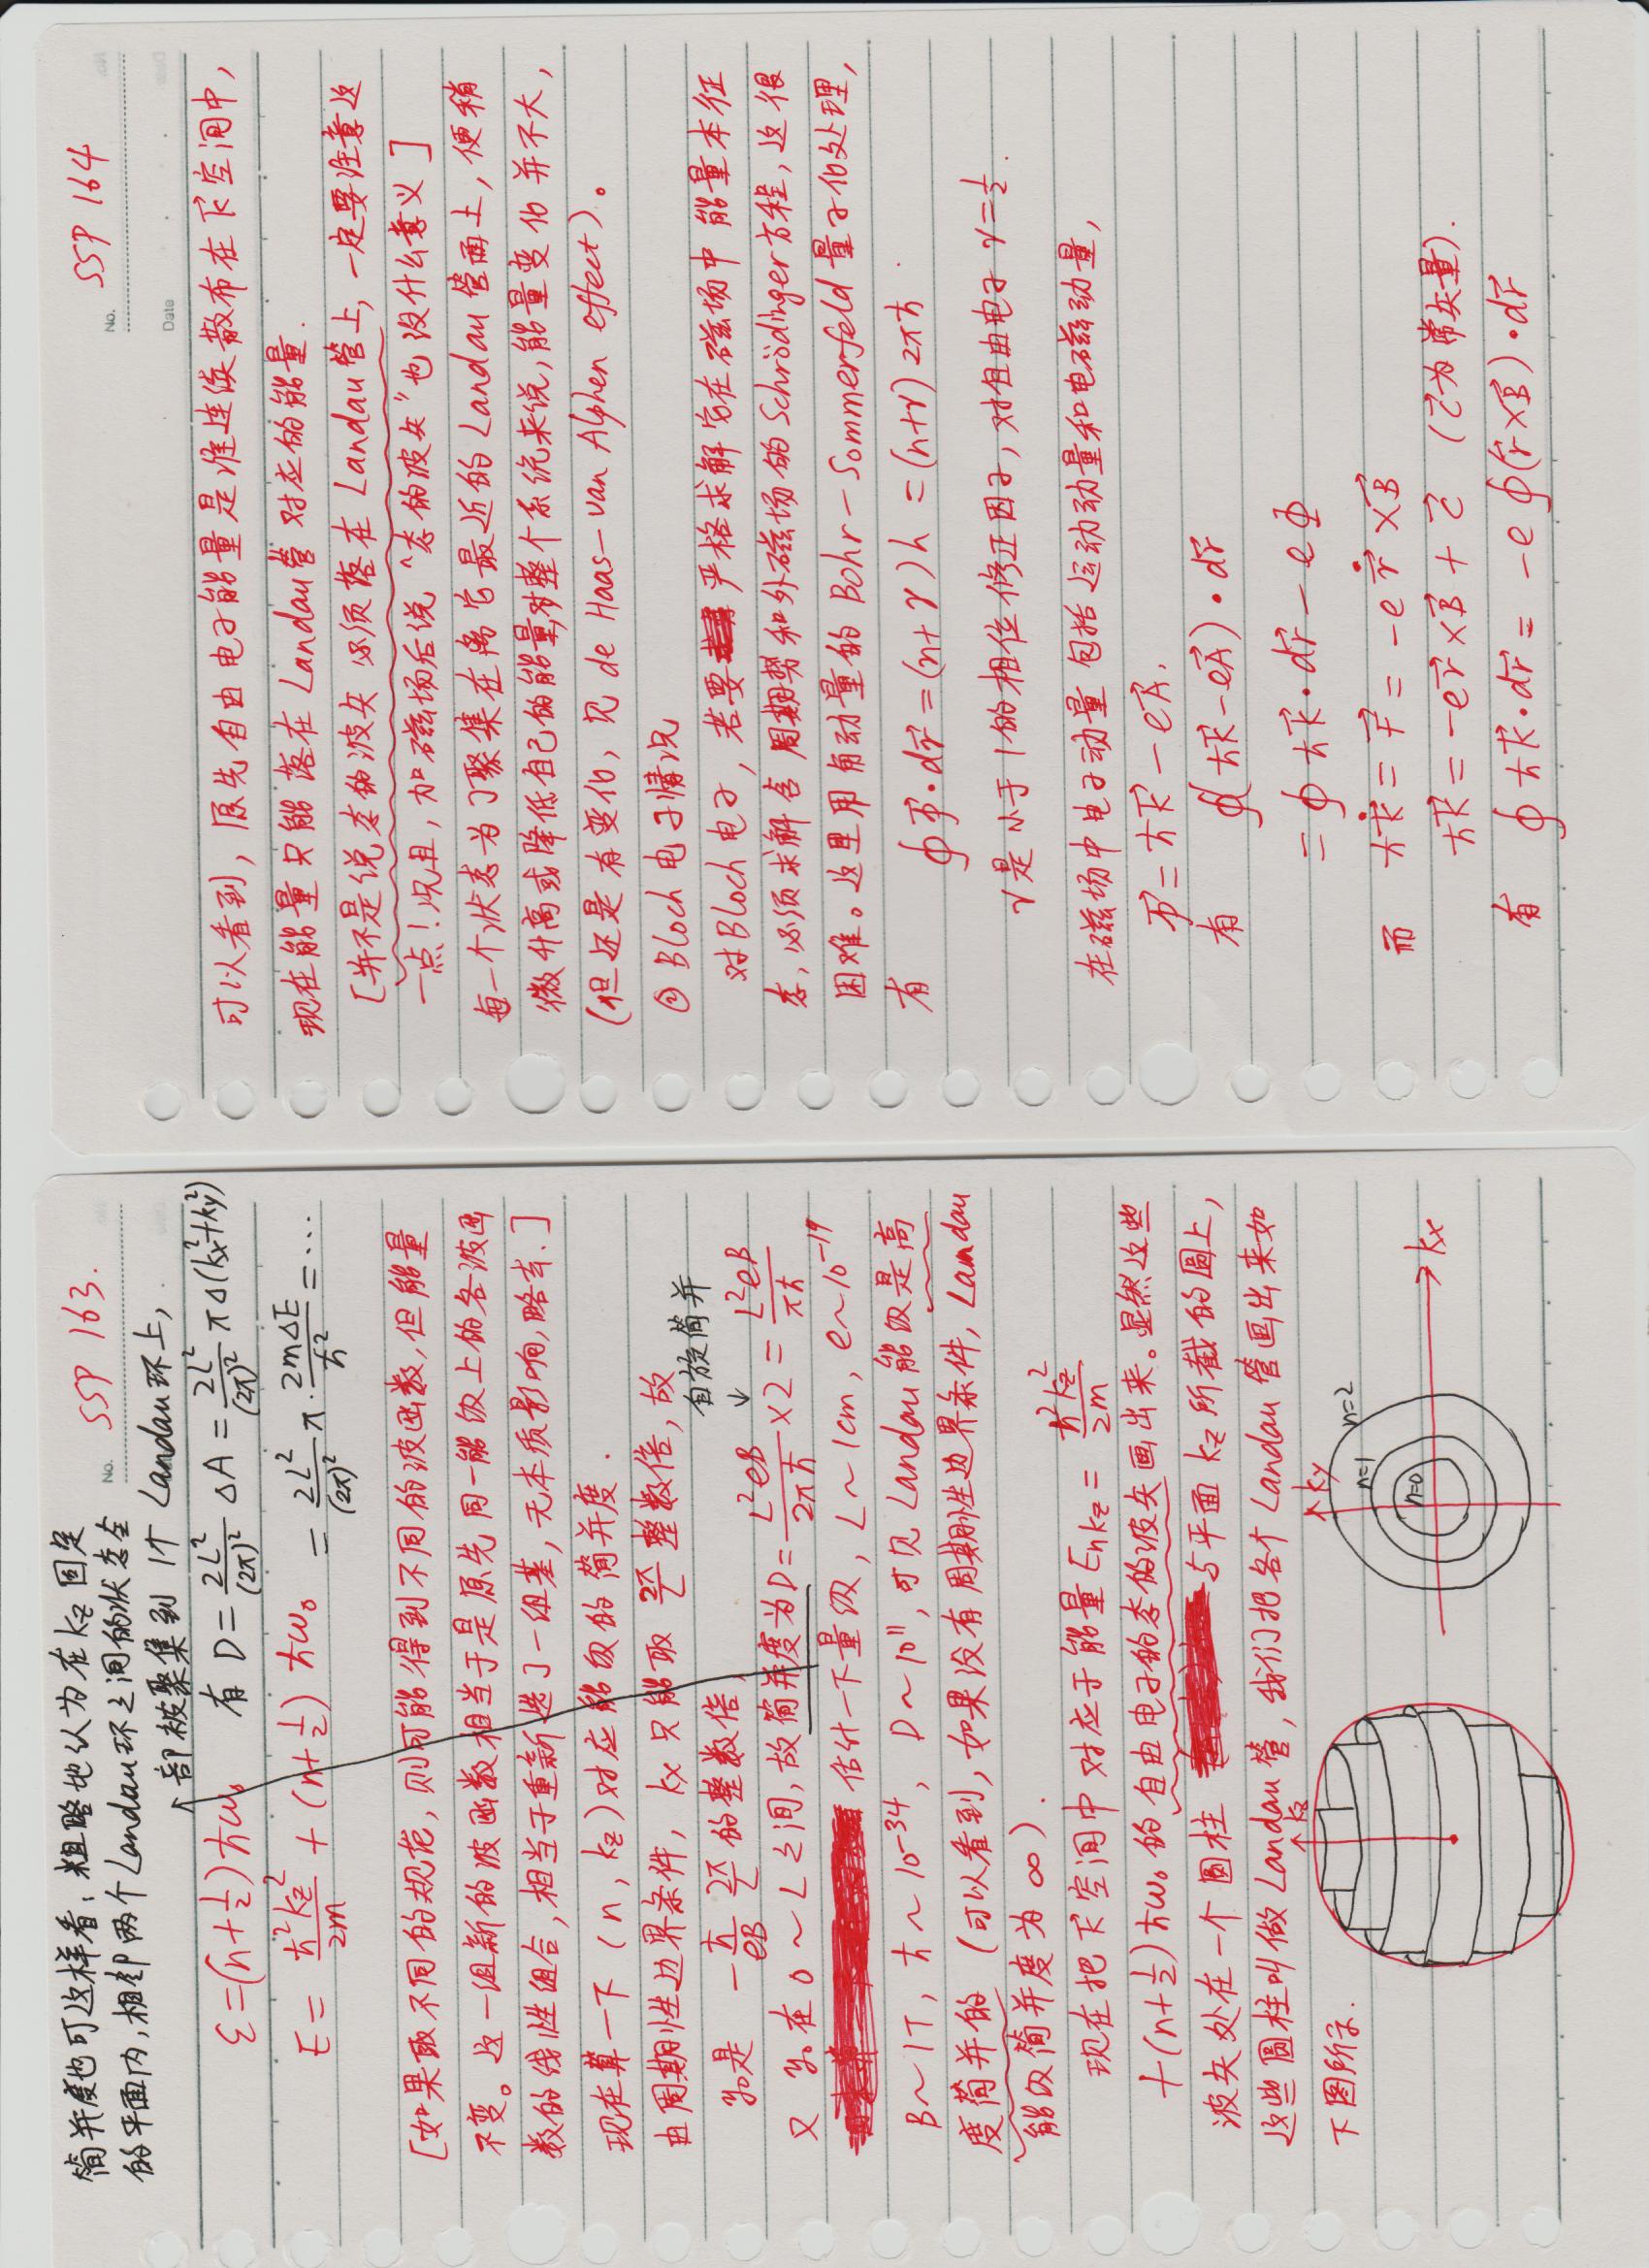 SSP 163.
No.
简并度也可这样看，粗略地认为在kz固定
的平面内，相邻两个Landau环之间的状态全
部被聚集到1个Landau环上，
ε=(n+1/2)ℏω₀ 有 D=2L²/(2π)² ΔA=2L²/(2π)² πΔ(kx²+ky²)
E=ℏ²kz²/2m+(n+1/2)ℏω₀ =2L²/(2π)² π·2mΔE/ℏ²=…
[如果取不同的规范，则可能得到不同的波函数，但能量
不变。这一组新的波函数相当于是原先同一能级上的各波函
数的线性组合，相当于重新选了一组基，无本质影响，略去.]
现在算一下（n, kz）对应能级的简并度.
由周期性边界条件，kx只能取2π/L整数倍，故
y₀是 -ℏ/eB 2π/L 的整数倍，
自旋简并
↓
又 y₀在0~L之间，故简并度为D=L²eB/2πℏ×2=L²eB/πℏ
估计一下量级，L~1cm，e~10⁻¹⁹
B~1T，ℏ~10⁻³⁴，D~10¹¹，可见Landau能级是高
度简并的（可以看到，如果没有周期性边界条件，Landau
能级简并度为∞）.
现在把k⃗空间中对应于能量Enkz=ℏ²kz²/2m
+(n+1/2)ℏω₀的自由电子的态的波矢画出来。显然这些
波矢处在一个圆柱与平面kz所截的圆上，
这些圆柱叫做Landau管，我们把各个Landau管画出来如
下图所示.
kz
ky
n=2
n=1
n=0
kx
SSP 164
No.
Date
可以看到，原先自由电子能量是准连续散布在k⃗空间中，
现在能量只能落在Landau管对应的能量.
[并不是说态的波矢必须落在Landau管上，一定要注意这
一点！况且，加磁场后说“态的波矢”也没什么意义]
每一个状态为了聚集在离它最近的Landau管面上，便稍
微升高或降低自己的能量，对整个系统来说，能量变化并不大，
(但还是有变化，见de Haas-van Alphen effect)。
② Bloch电子情况
对Bloch电子，若要严格求解它在磁场中能量本征
态，必须求解含周期势和外磁场的Schrödinger方程，这很
困难。这里用角动量的Bohr-Sommerfeld量子化处理，
有 ∮p⃗·dr⃗=(n+γ)h=(n+γ)2πℏ
γ是小于1的相位修正因子，对自由电子γ=1/2.
在磁场中电子动量包括运动动量和电磁动量，
p⃗=ℏk⃗-eA⃗.
有 ∮(ℏk⃗-eA⃗)·dr⃗
=∮ℏk⃗·dr⃗-eΦ
而 ℏk⃗̇=F⃗=-er⃗̇×B⃗
ℏk⃗=-er⃗×B⃗+c⃗ (c⃗为常矢量).
有 ∮ℏk⃗·dr⃗=-e∮(r⃗×B⃗)·dr⃗